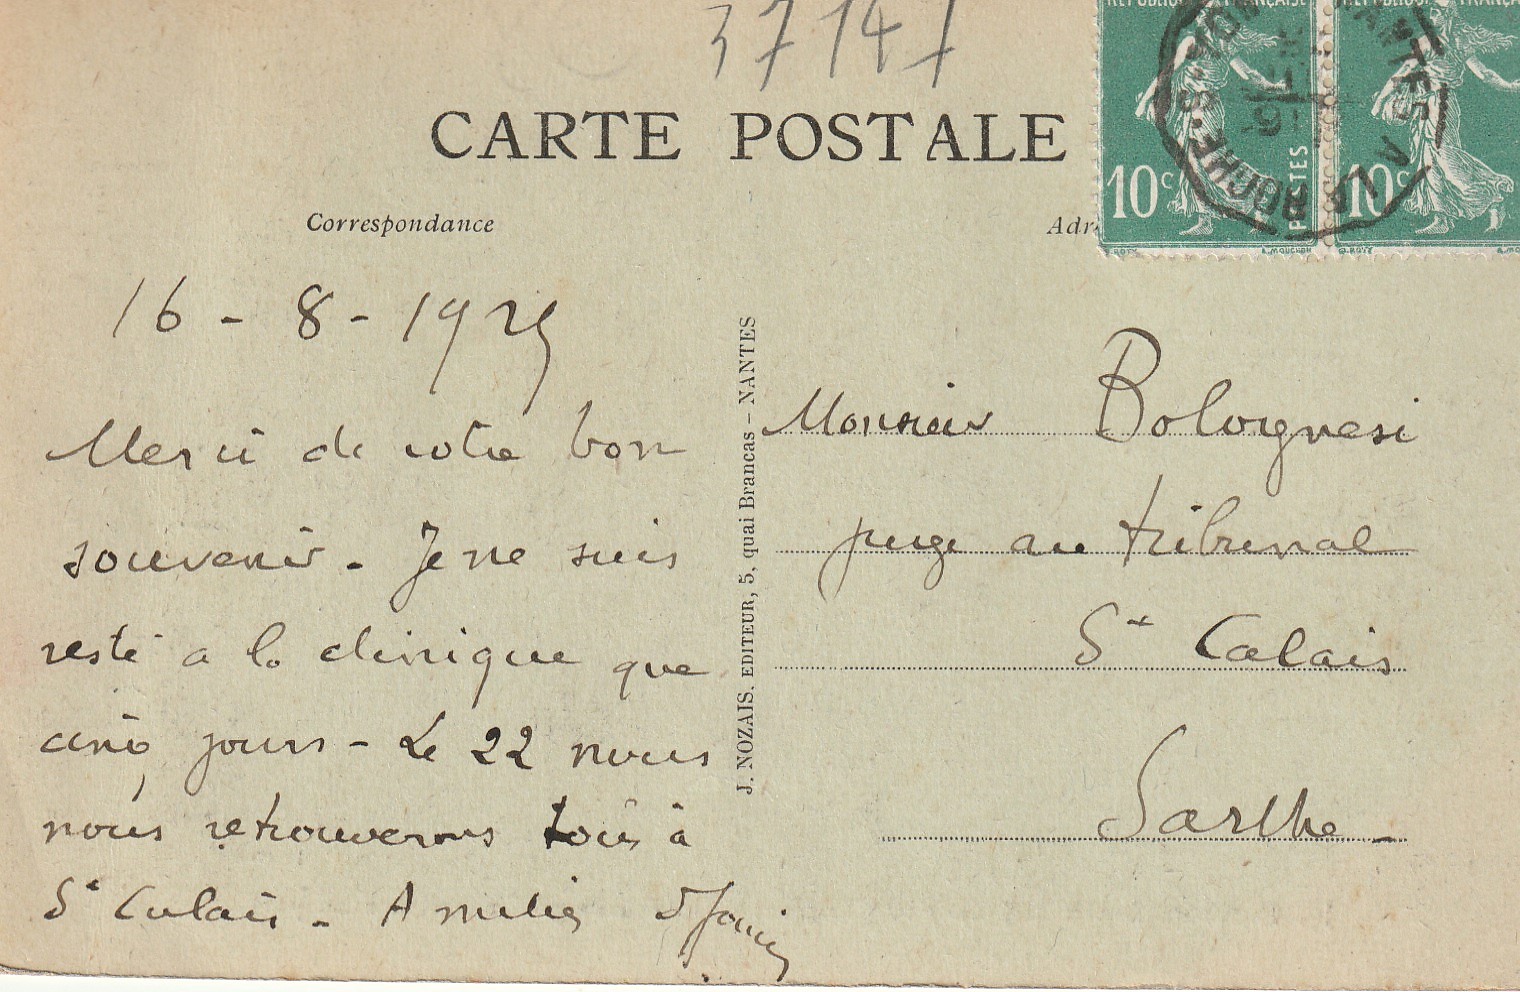 37147
CARTE POSTALE
RÉPUBLIQUE FRANÇAISE
RÉPUBLIQUE FRANÇA
10c
POSTES
10c
A. MOUCHON
O. ROTY
NANTES A
LA ROCHE-S-YON
Correspondance
Adr
16 - 8 - 1925
Merci de votre bon
souvenir. Je ne suis
resté a la clinique que
cinq jours - Le 22 nous
nous retrouverons tous à
St Calais. Amitiés
J. NOZAIS, EDITEUR, 5, quai Brancas - NANTES
Monsieur Bolognesi
juge au tribunal
St Calais
Sarthe -